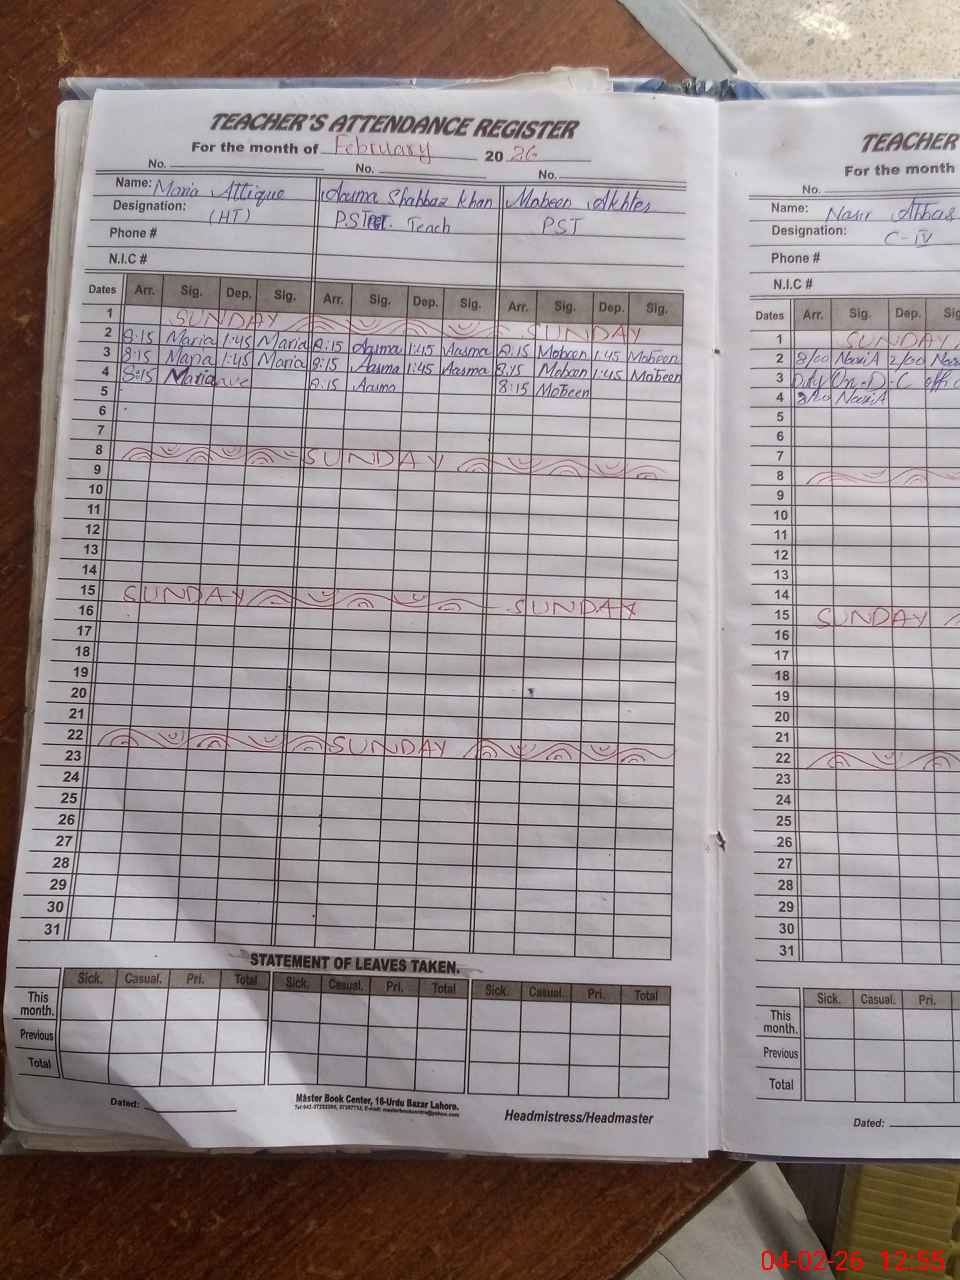 TEACHER'S ATTENDANCE REGISTER
For the month of February 20 26
No. No. No.
Name: Maria Attique Asuma Shahbaz Khan Mobeen Akhter
Designation: (HT) P.S.T Teach PST
Phone #
N.I.C #
Dates Arr. Sig. Dep. Sig. Arr. Sig. Dep. Sig. Arr. Sig. Dep. Sig.
1 SUNDAY SUNDAY
2 8:15 Maria 1:45 Maria 8:15 Aasma 1:45 Aasma 8:15 Mobeen 1:45 Mobeen
3 8:15 Maria 1:45 Maria 8:15 Aasma 1:45 Aasma 8:15 Mobeen 1:45 Mobeen
4 8:15 Maria 8:15 Aasma 8:15 Mobeen
5
6
7
8 SUNDAY
9
10
11
12
13
14
15 SUNDAY SUNDAY
16
17
18
19
20
21
22 SUNDAY
23
24
25
26
27
28
29
30
31
STATEMENT OF LEAVES TAKEN.
Sick. Casual. Pri. Total Sick. Casual. Pri. Total Sick. Casual. Pri. Total
This month.
Previous
Total
Dated:
Master Book Center, 16-Urdu Bazar Lahore.
Headmistress/Headmaster
TEACHER
For the month
No.
Name: Nasir Abbas
Designation: C-IV
Phone #
N.I.C #
Dates Arr. Sig. Dep. Sig
1 SUNDAY
2 8/00 NasirA 2/00 Nas
3 Duty On-D-C offic
4 8/20 NasirA
5
6
7
8
9
10
11
12
13
14
15 SUNDAY
16
17
18
19
20
21
22
23
24
25
26
27
28
29
30
31
Sick. Casual. Pri.
This month.
Previous
Total
Dated:
04-02-26 12:55